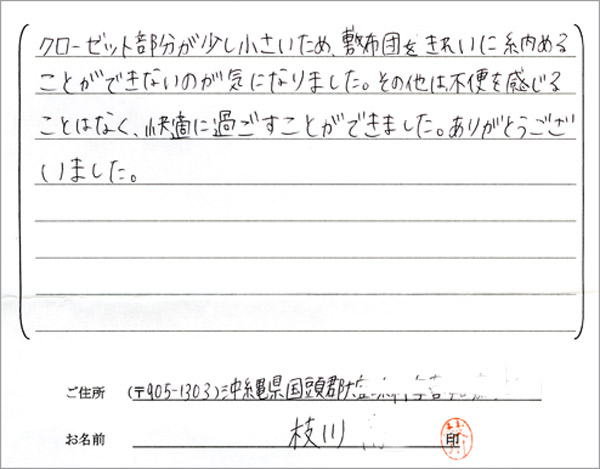 クローゼット部分が少し小さいため、敷布団をきれいに納める
ことができないのが気になりました。その他は不便を感じる
ことはなく、快適に過ごすことができました。ありがとうござ
いました。
ご住所 (〒905-1303)沖縄県国頭郡大宜
お名前 枝川 印